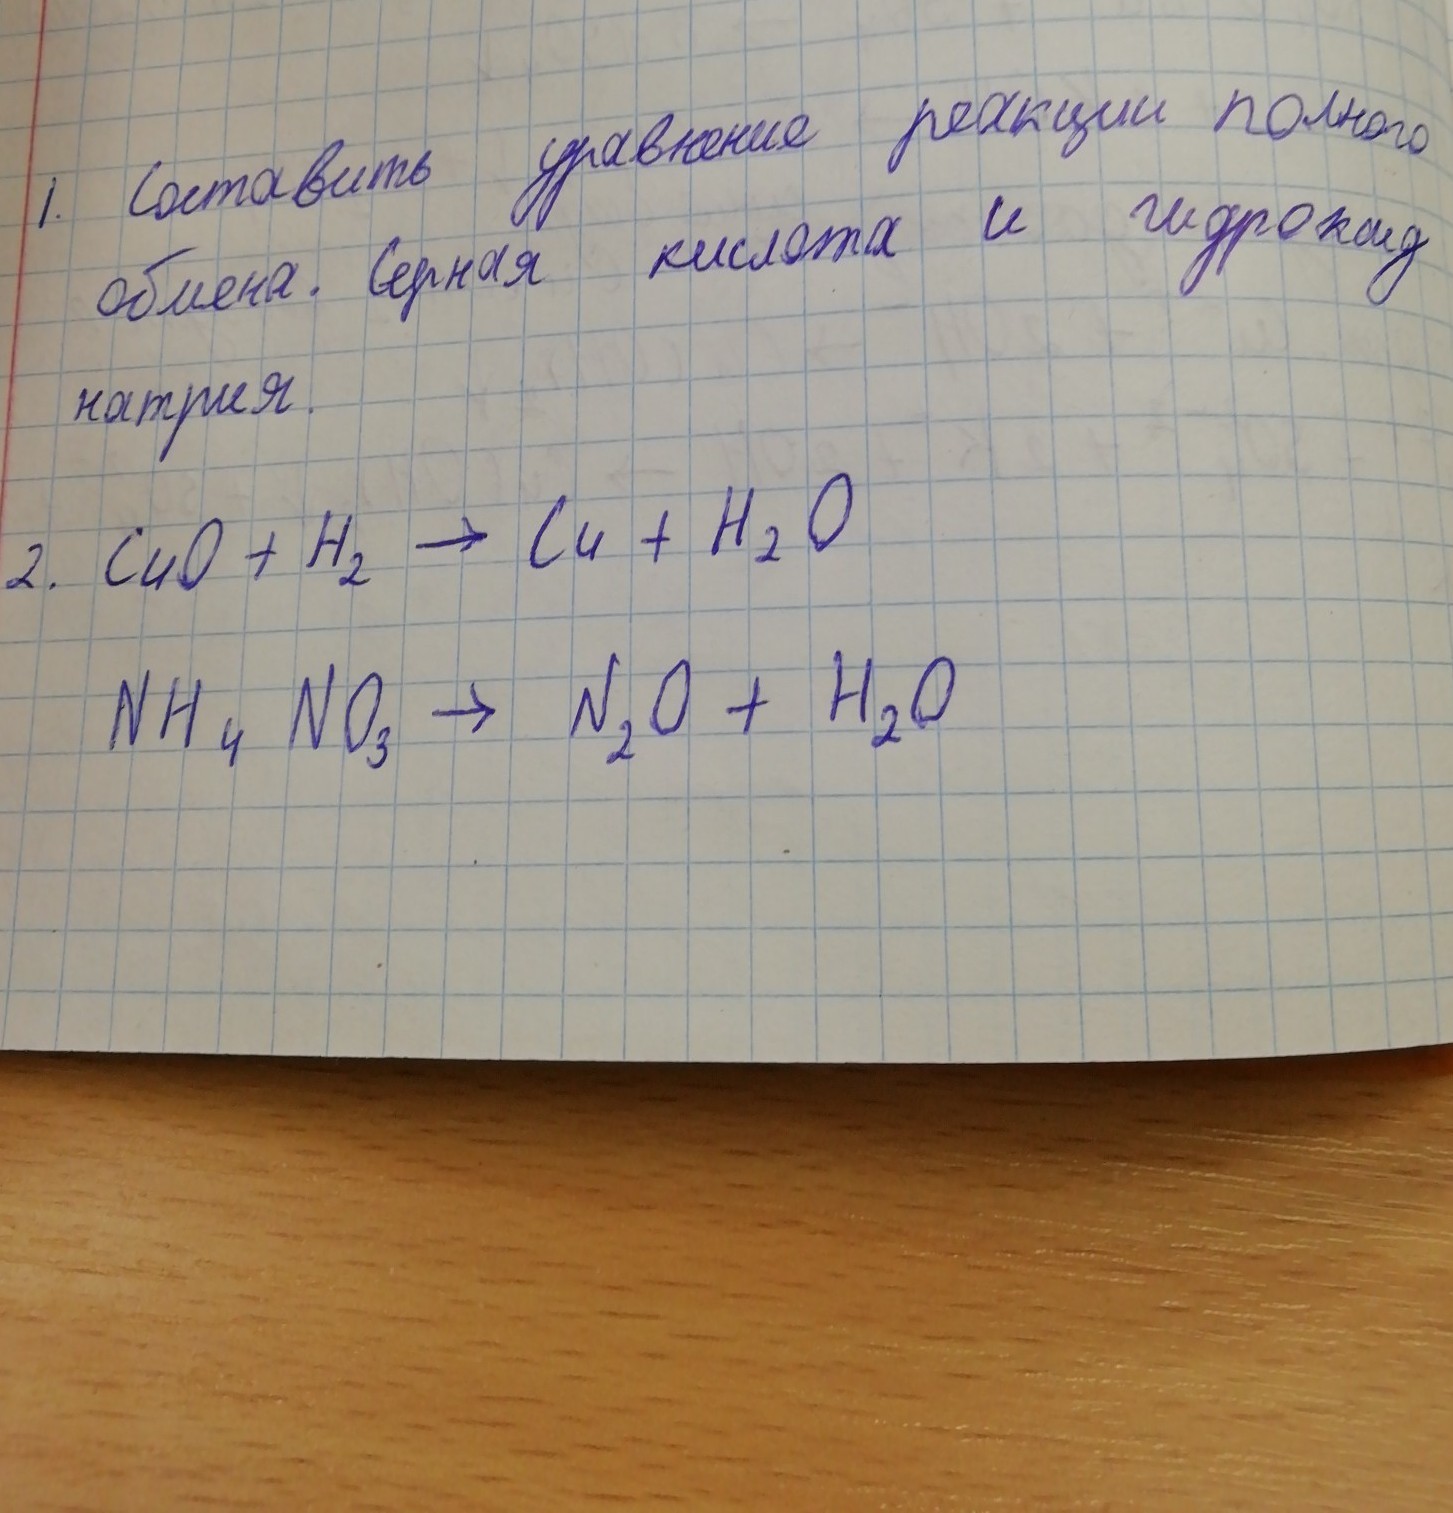 1. Составить уравнение реакции полного
обмена. Серная кислота и гидроксид
натрия.
2. CuO + H₂ → Cu + H₂O
NH₄ NO₃ → N₂O + H₂O